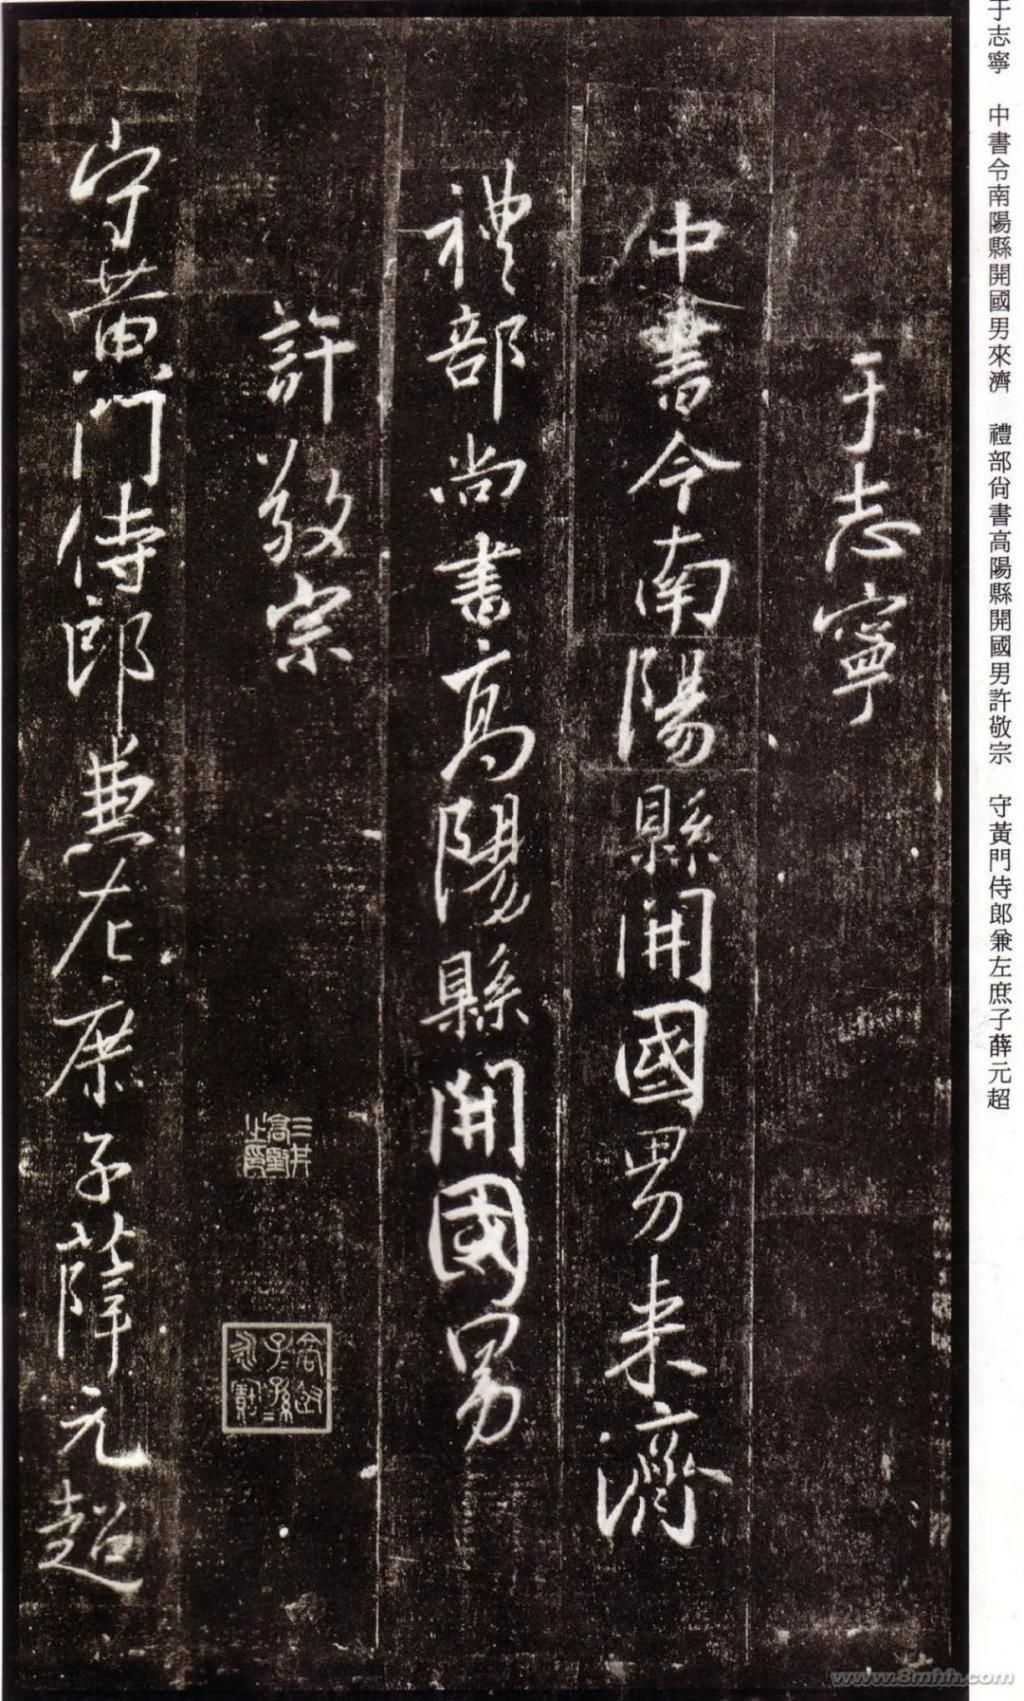 于志寧　中書令南陽縣開國男來濟　禮部尙書高陽縣開國男許敬宗　守黃門侍郎兼左庶子薛元超
于志寧
中書令南陽縣開國男来濟
禮部尚書高陽縣開國男
許敬宗
守黄門侍郎兼左庶子薛元超
www.8mhh.com